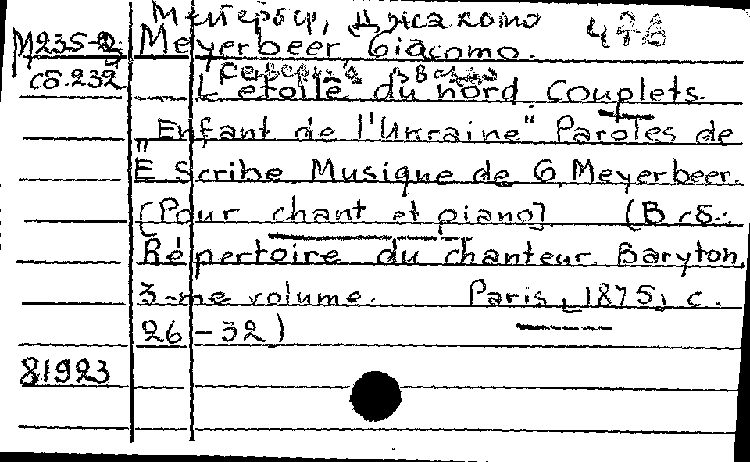 Мейербер, Джакомо 436
М235-2 Meyerbeer, Giacomo.
сб.232 Северная звезда
L'étoile du nord. Couplets.
"Enfant de l'Ukraine" Paroles de
E Scribe Musique de G. Meyerbeer.
[Pour chant et piano] (В сб.:
Répertoire du chanteur. Baryton.
3-me volume. Paris, [1875], с.
26-32)
81923